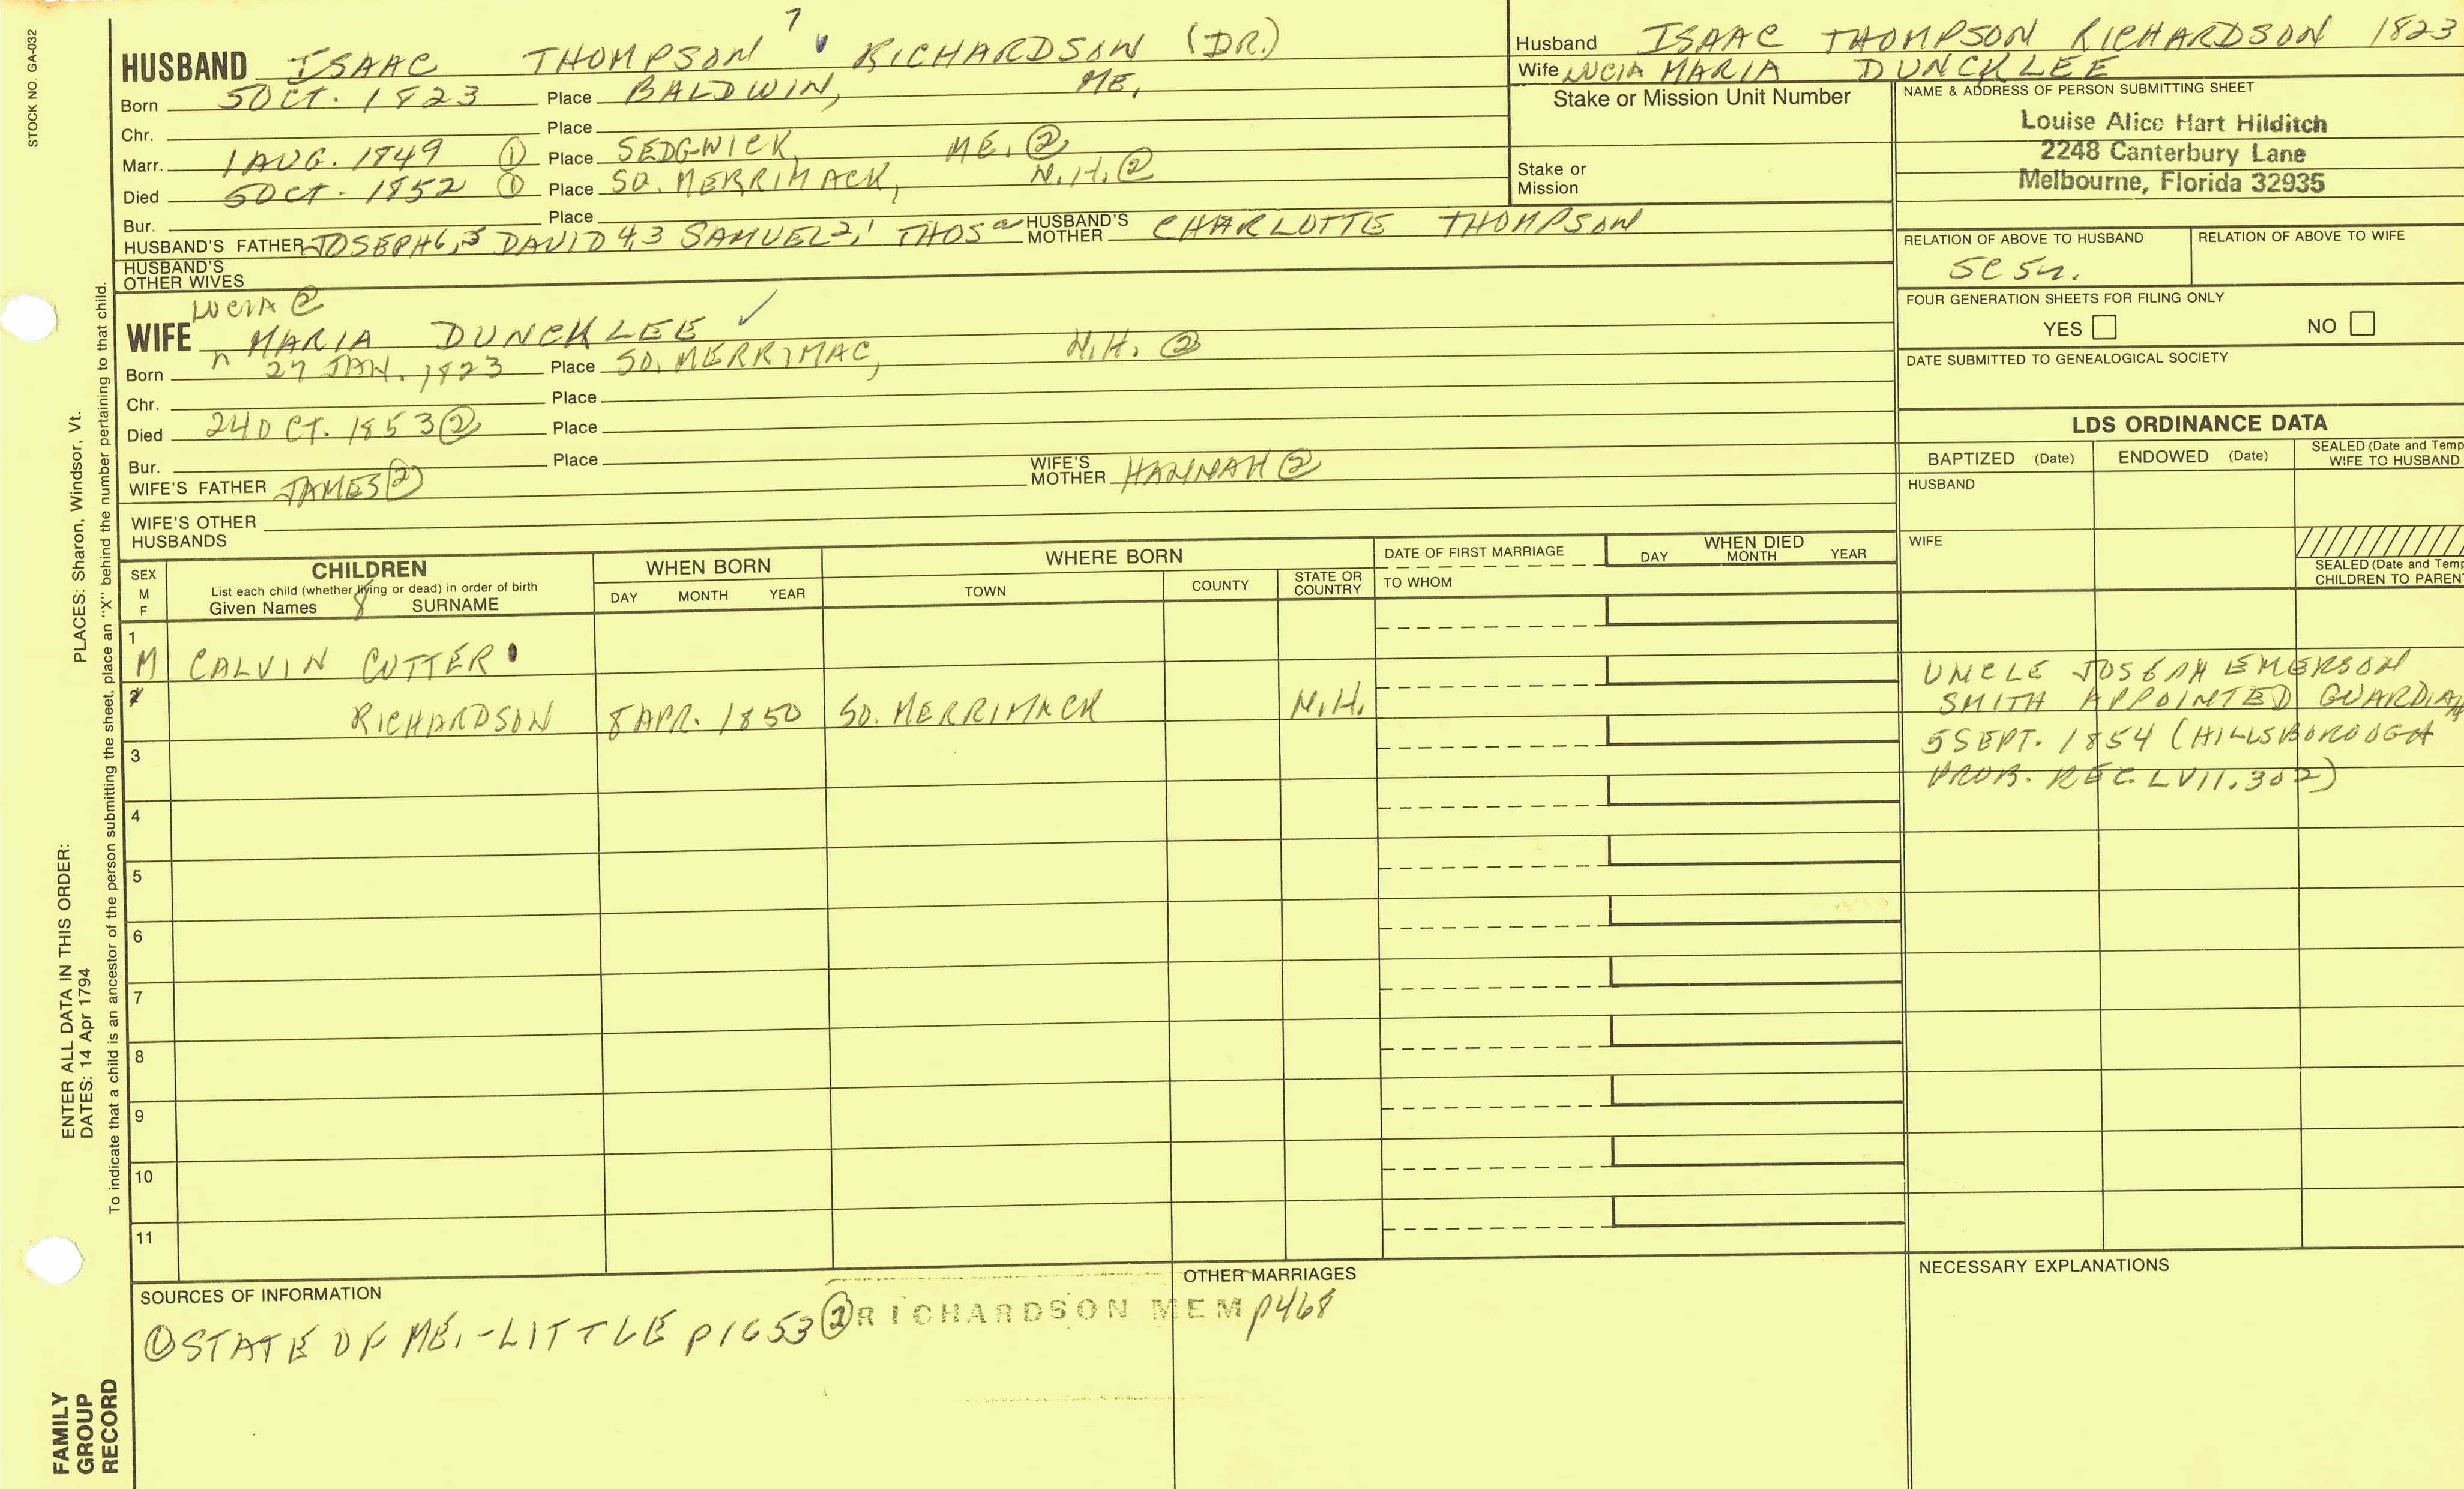 STOCK NO. GA-032
7
HUSBAND ISAAC THOMPSON RICHARDSON (DR.)
Born 5 OCT. 1823 Place BALDWIN, ME,
Chr. Place
Marr. 1 AUG. 1849 ① Place SEDGWICK, ME. ②
Died 5 OCT - 1852 ① Place SO. MERRIMACK, N.H. ②
Bur. Place
HUSBAND'S FATHER JOSEPH6,5 DAVID 4,3 SAMUEL2,1 THOS HUSBAND'S MOTHER CHARLOTTE THOMPSON
HUSBAND'S OTHER WIVES
LUCIA ②
WIFE MARIA DUNCKLEE ✓
Born 27 JAN. 1823 Place SO. MERRIMAC, N.H. ②
Chr. Place
Died 24 OCT. 1853 ② Place
Bur. Place
WIFE'S FATHER JAMES ② WIFE'S MOTHER HANNAH ②
WIFE'S OTHER HUSBANDS
Husband ISAAC THOMPSON RICHARDSON 1823
Wife LUCIA MARIA DUNCKLEE
Stake or Mission Unit Number
Stake or Mission
NAME & ADDRESS OF PERSON SUBMITTING SHEET
Louise Alice Hart Hilditch
2248 Canterbury Lane
Melbourne, Florida 32935
RELATION OF ABOVE TO HUSBAND RELATION OF ABOVE TO WIFE
5C 5R.
FOUR GENERATION SHEETS FOR FILING ONLY
YES NO
DATE SUBMITTED TO GENEALOGICAL SOCIETY
LDS ORDINANCE DATA
BAPTIZED (Date) ENDOWED (Date) SEALED (Date and Temp
WIFE TO HUSBAND
HUSBAND
WIFE
SEALED (Date and Temp
CHILDREN TO PAREN
SEX
M
F
CHILDREN
List each child (whether living or dead) in order of birth
Given Names 8 SURNAME
WHEN BORN
DAY MONTH YEAR
WHERE BORN
TOWN COUNTY STATE OR COUNTRY
DATE OF FIRST MARRIAGE
TO WHOM
WHEN DIED
DAY MONTH YEAR
1
M CALVIN CUTTER
2
RICHARDSON 8 APR. 1850 SO. MERRIMACK N.H.
UNCLE JOSEPH EMERSON
SMITH APPOINTED GUARDIAN
5 SEPT. 1854 (HILLSBOROUGH
PROB. REC. LVII.302)
3
4
5
6
7
8
9
10
11
SOURCES OF INFORMATION
① STATE OF ME.-LITTLE p1653 ② RICHARDSON MEM p468
OTHER MARRIAGES
NECESSARY EXPLANATIONS
ENTER ALL DATA IN THIS ORDER:
DATES: 14 Apr 1794
PLACES: Sharon, Windsor, Vt.
To indicate that a child is an ancestor of the person submitting the sheet, place an "X" behind the number pertaining to that child.
FAMILY
GROUP
RECORD